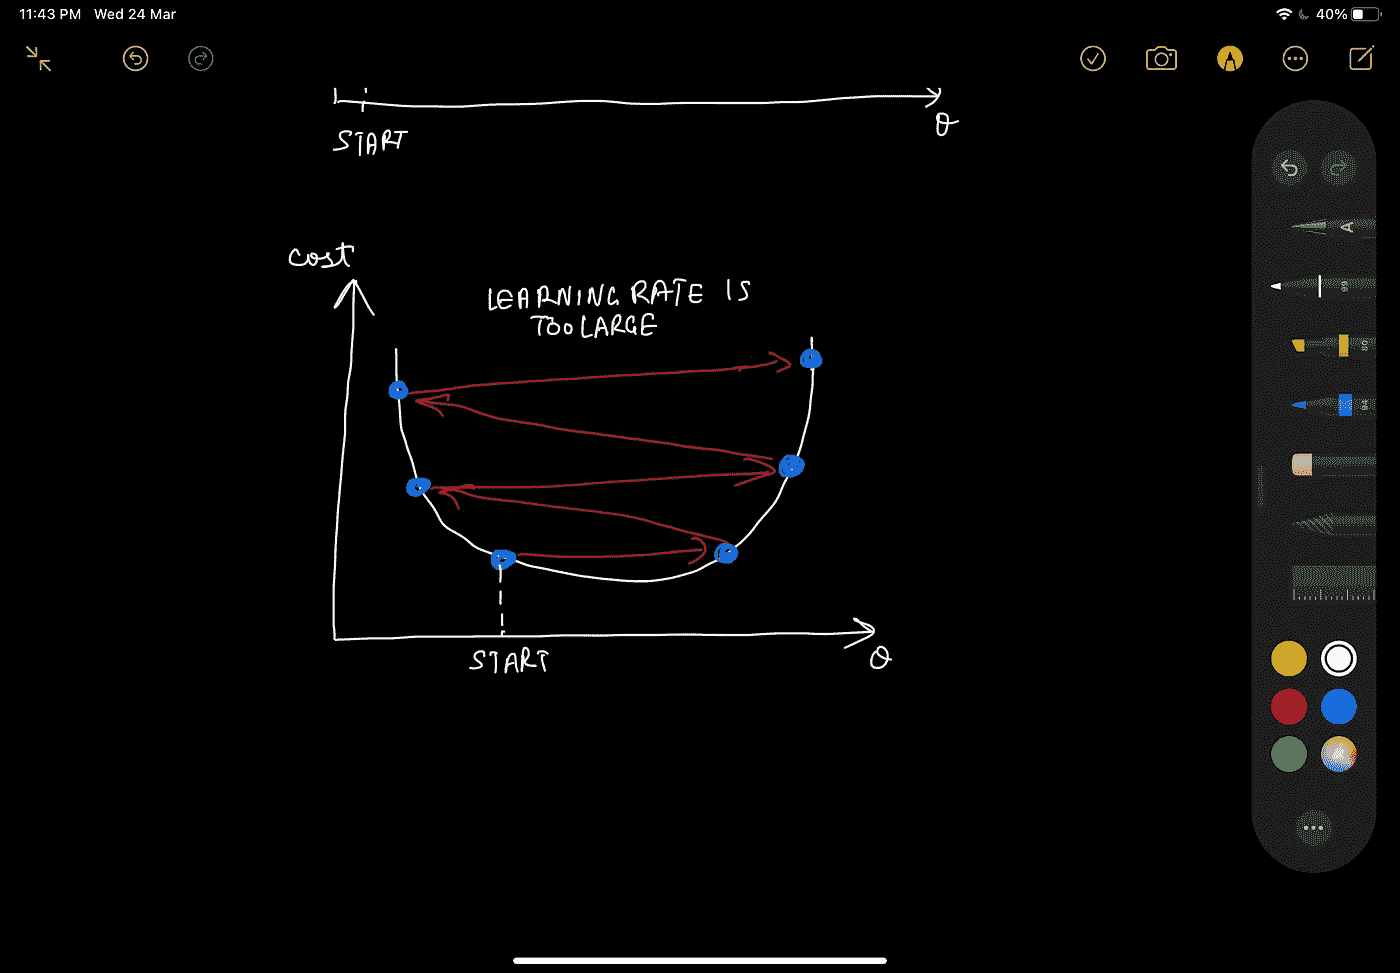 11:43 PM Wed 24 Mar
40%
θ
START
cost
LEARNING RATE IS
TOO LARGE
START
θ
A
99
80
94